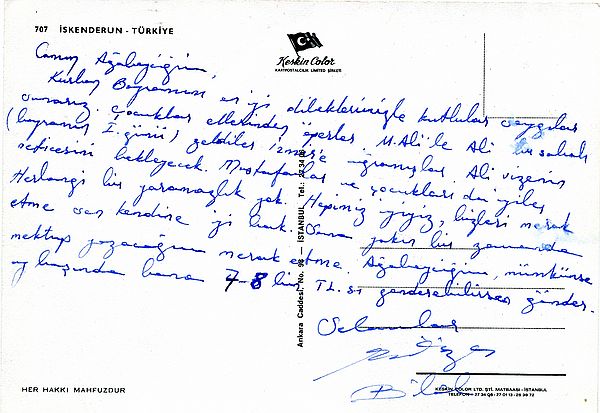 707 İSKENDERUN - TÜRKİYE
Keskin Color
KARTPOSTALCILIK LIMITED ŞİRKETİ
Canım Ağabeyciğim,
Kurban Bayramını en iyi dileklerimizle kutlular saygılar
sunarız. Çocuklar ellerinden öperler. M. Ali ile Ali bu sabah
(bayramın I. günü) geldiler İzmir'e uğramışlar. Ali vizenin
neticesini bekleyecek. Mustafa ve çocukları da iyiler
Herhangi bir yaramazlık yok. Hepimiz iyiyiz, bizleri merak
etme sen kendine iyi bak. Sana yakın bir zamanda
mektup yazacağım merak etme. Ağabeyciğim, mümkünse
ay başında bana 7-8 bin TL. sı gönderebilirsen gönder.
Selamlar
Bilal
Ankara Caddesi, No. 98 - İSTANBUL Tel.: 27 34 06
HER HAKKI MAHFUZDUR
KESKİN COLOR LTD. ŞTİ. MATBAASI - İSTANBUL
TELEFON - 27 34 06 - 27 01 13 - 28 39 72